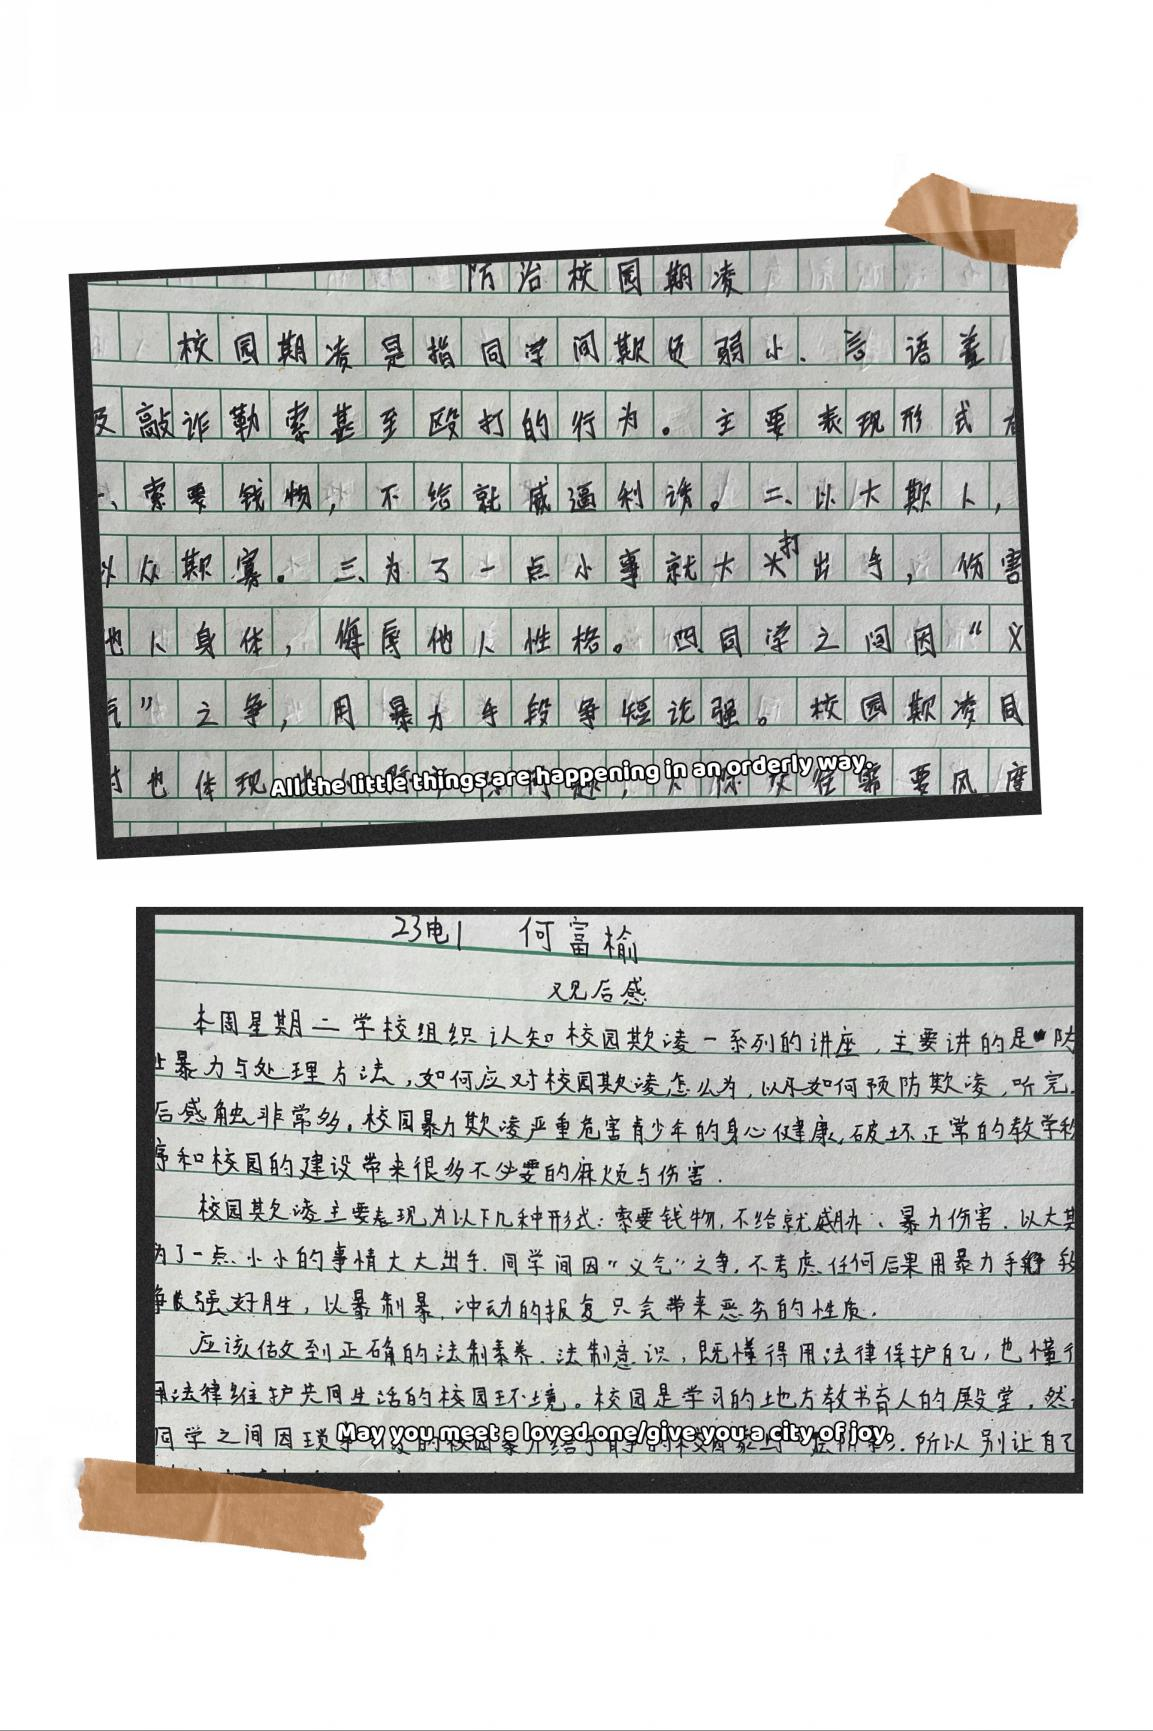 防治校园期凌
校园期凌是指同学间欺负弱小、言语羞
及敲诈勒索甚至殴打的行为。主要表现形式有
、索要钱物，不给就威逼利诱。二、以大欺人，
以众欺寡。三、为了一点小事就大打出手，伤害
他人身体，侮辱他人性格。四同学之间因“义
气”之争，用暴力手段争短论强。校园欺凌同
时也体现 需要风度
All the little things are happening in an orderly way.
23电1 何富榆
观后感
本周星期二学校组织认知校园欺凌一系列的讲座，主要讲的是防
止暴力与处理方法，如何应对校园欺凌怎么为，以及如何预防欺凌，听完
后感触非常多。校园暴力欺凌严重危害青少年的身心健康，破坏正常的教学秩
序和校园的建设带来很多不必要的麻烦与伤害.
校园欺凌主要表现为以下几种形式：索要钱物，不给就威胁、暴力伤害.以大其
为了一点小小的事情大大出手.同学间因“义气”之争，不考虑任何后果用暴力手段
争强好胜，以暴制暴.冲动的报复只会带来恶劣的性质.
应该做到正确的法制素养.法制意识，既懂得用法律保护自己，也懂得
用法律维护共同生活的校园环境。校园是学习的地方教书育人的殿堂，然
同学之间因琐事 的校园暴力给 .所以别让自己
May you meet a loved one/give you a city of joy.